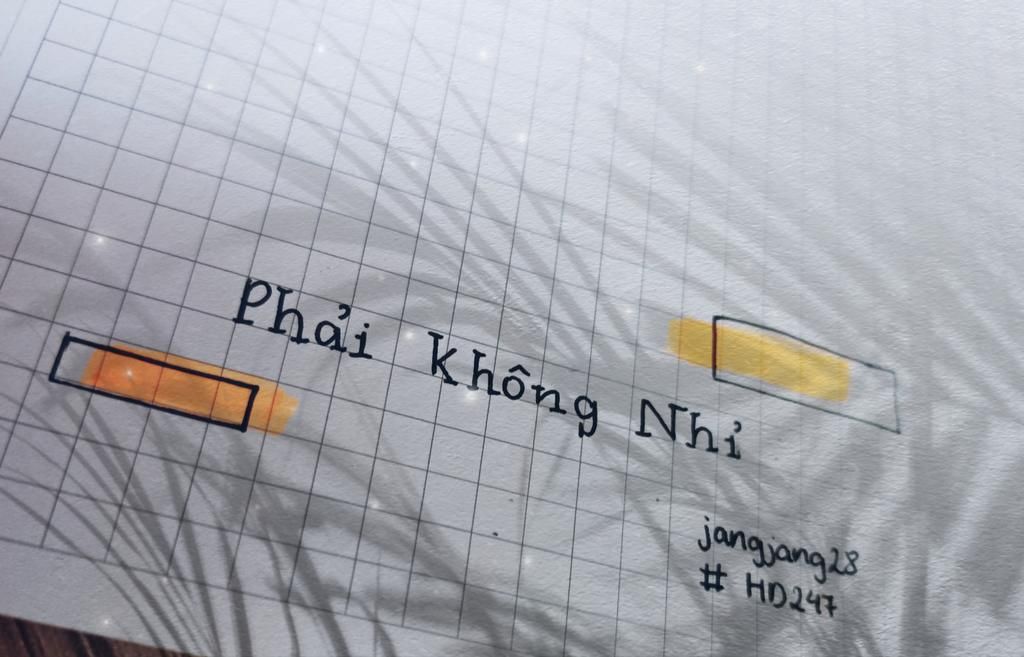 Phải Không Nhỉ
jangjang28
# HD247